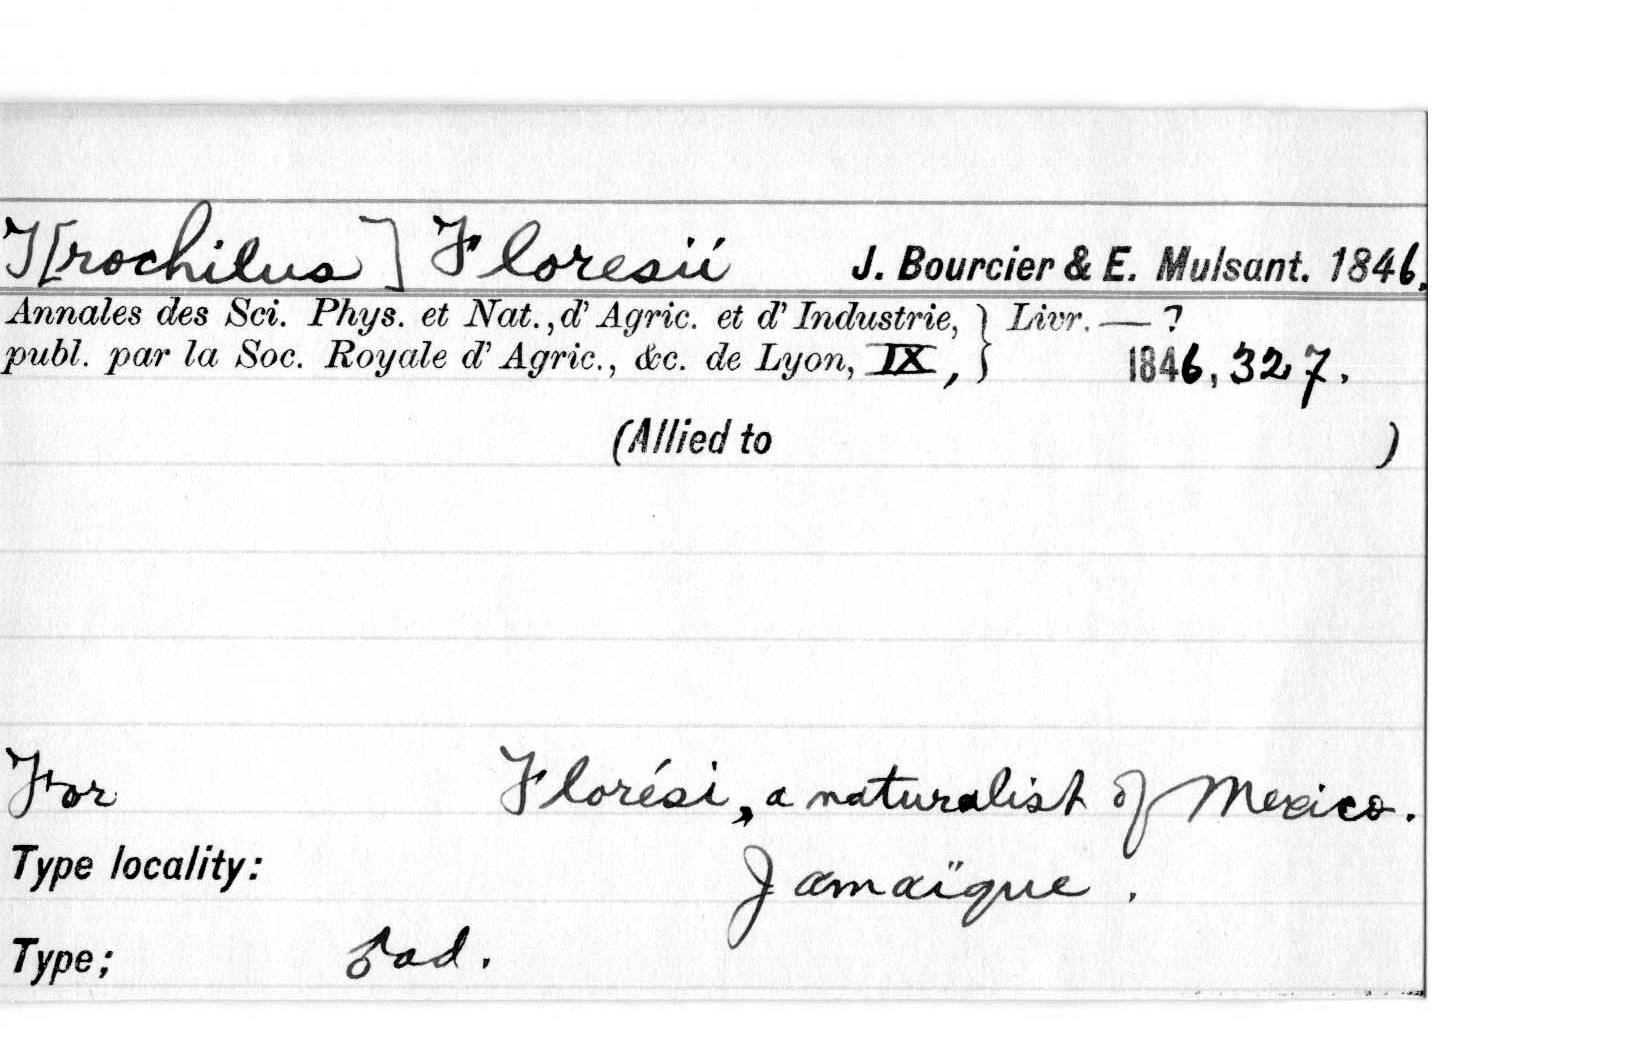 T[rochilus] Floresii J. Bourcier & E. Mulsant. 1846.
Annales des Sci. Phys. et Nat., d' Agric. et d' Industrie, } Livr. — ?
publ. par la Soc. Royale d' Agric., &c. de Lyon, IX, } 1846, 327.
(Allied to )
For Florési, a naturalist of Mexico.
Type locality: Jamaïque.
Type; ♂ ad.